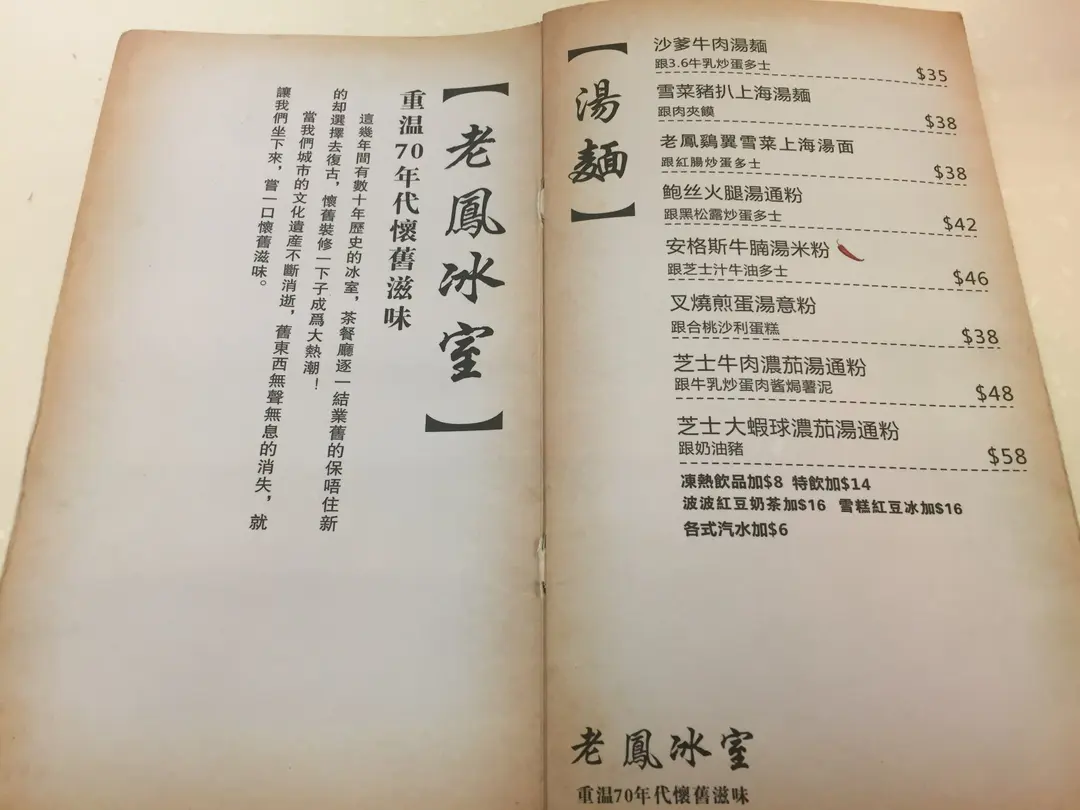 【老鳳冰室】
重温70年代懷舊滋味
這幾年間有數十年歷史的冰室，茶餐廳逐一結業舊的保唔住新
的却選擇去復古，懷舊裝修一下子成爲大熱潮！
當我們城市的文化遺産不斷消逝，舊東西無聲無息的消失，就
讓我們坐下來，嘗一口懷舊滋味。
【湯麵】
沙爹牛肉湯麵
跟3.6牛乳炒蛋多士 $35
雪菜豬扒上海湯麵
跟肉夾饃 $38
老鳳鷄翼雪菜上海湯面
跟紅腸炒蛋多士 $38
鮑丝火腿湯通粉
跟黑松露炒蛋多士 $42
安格斯牛腩湯米粉
跟芝士汁牛油多士 $46
叉燒煎蛋湯意粉
跟合桃沙利蛋糕 $38
芝士牛肉濃茄湯通粉
跟牛乳炒蛋肉酱焗薯泥 $48
芝士大蝦球濃茄湯通粉
跟奶油豬 $58
凍熱飲品加$8 特飲加$14
波波紅豆奶茶加$16 雪糕紅豆冰加$16
各式汽水加$6
老鳳冰室
重温70年代懷舊滋味